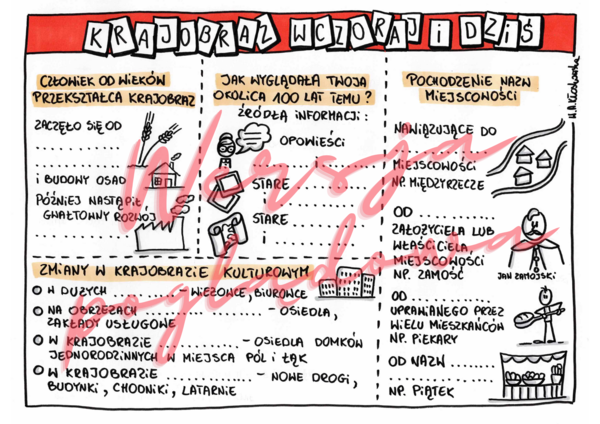 KRAJOBRAZ WCZORAJ I DZIŚ
CZŁOWIEK OD WIEKÓW
PRZEKSZTAŁCA KRAJOBRAZ
ZACZĘŁO SIĘ OD
. . . . . . . . . . .
. . . . . . . . . . .
I BUDOWY OSAD
PÓŹNIEJ NASTĄPIŁ
GWAŁTOWNY ROZWÓJ
. . . . . . . . . . .
JAK WYGLĄDAŁA TWOJA
OKOLICA 100 LAT TEMU?
ŹRÓDŁA INFORMACJI:
OPOWIEŚCI
. . . . . . . . . . .
STARE . . . . . . . . . .
STARE . . . . . . . . . .
POCHODZENIE NAZW
MIEJSCOWOŚCI
NAWIĄZUJĄCE DO
. . . . . . . . . . .
MIEJSCOWOŚCI
NP. MIĘDZYRZECZE
OD . . . . . . . .
ZAŁOŻYCIELA LUB
WŁAŚCICIELA
MIEJSCOWOŚCI
NP. ZAMOŚĆ
JAN ZAMOJSKI
OD . . . . . . . .
UPRAWIANEGO PRZEZ
WIELU MIESZKAŃCÓW
NP. PIEKARY
OD NAZW . . . . .
. . . . . . . . . . .
NP. PIĄTEK
ZMIANY W KRAJOBRAZIE KULTUROWYM
W DUŻYCH . . . . . . . . . – WIEŻOWCE, BIUROWCE
NA OBRZEŻACH . . . . . . . . . . . – OSIEDLA,
ZAKŁADY USŁUGOWE
W KRAJOBRAZIE . . . . . . . . . – OSIEDLA DOMKÓW
JEDNORODZINNYCH W MIEJSCA PÓL I ŁĄK
W KRAJOBRAZIE . . . . . . . . . . – NOWE DROGI,
BUDYNKI, CHODNIKI, LATARNIE
Wersja
poglądowa